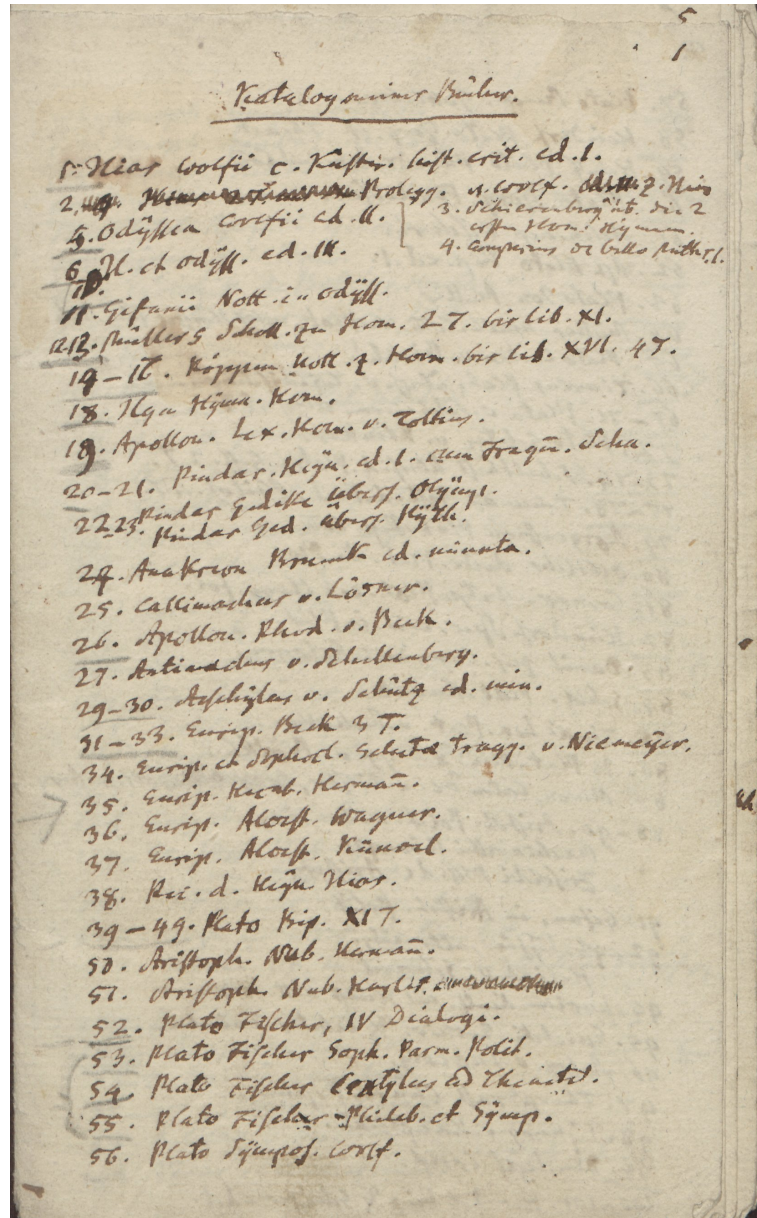 5
1
Katalog meiner Bücher.
1. Ilias Wolfii c. Küster. hist. crit. ed. 1.
2. Prolegg. v. Wolf. z. Ilias
3. Schierenberg üb. die 2
ersten Hom. Hymnen.
5. Odÿssea Wolfii ed. II.
4. de bello
6 Il. et Odÿss. ed. III.
10.
11. Gifanii Nott. in Odÿss.
12.13. Müllers Scholl. zu Hom. 2 T. bis lib. XI.
14–17. Köppen Nott. z. Hom. bis lib. XVI. 4 T.
18. Ilgen Hÿmn. Hom.
19. Apollon. Lex. Hom. v. Tollius.
20–21. Pindar. Heÿn. ed. 1. cum Fragm̄. Schn.
22 23. Pindar Gedike übers. Olÿmp.
Pindar Ged. übers. Pÿth.
24. Anakreon Brunck ed. minuta.
25. Callimachus v. Lösner.
26. Apollon. Rhod. v. Beck.
27. Antimachus v. Schellenberg.
29–30. Aeschÿlus v. Schütz ed. min.
31–33. Eurip. Beck 3 T.
34. Eurip. et Sophocl. Selecta tragg. v. Niemeÿer.
35. Eurip. Hecub. Hermañ.
36. Eurip. Alcest. Wagner.
37. Eurip. Alcest. Kuinoel.
38. Rec. d. Heÿn. Ilias.
39–49. Plato Bip. XI T.
50. Aristoph. Nub. Hermañ.
51. Aristoph. Nub. Harles.
52. Plato Fischer, IV Dialogi.
53. Plato Fischer Soph. Parm. Polit.
54. Plato Fischer Cratÿlus ed Theaetet.
55. Plato Fischer Phileb. et Sÿmp.
56. Plato Sÿmpos. Wolf.